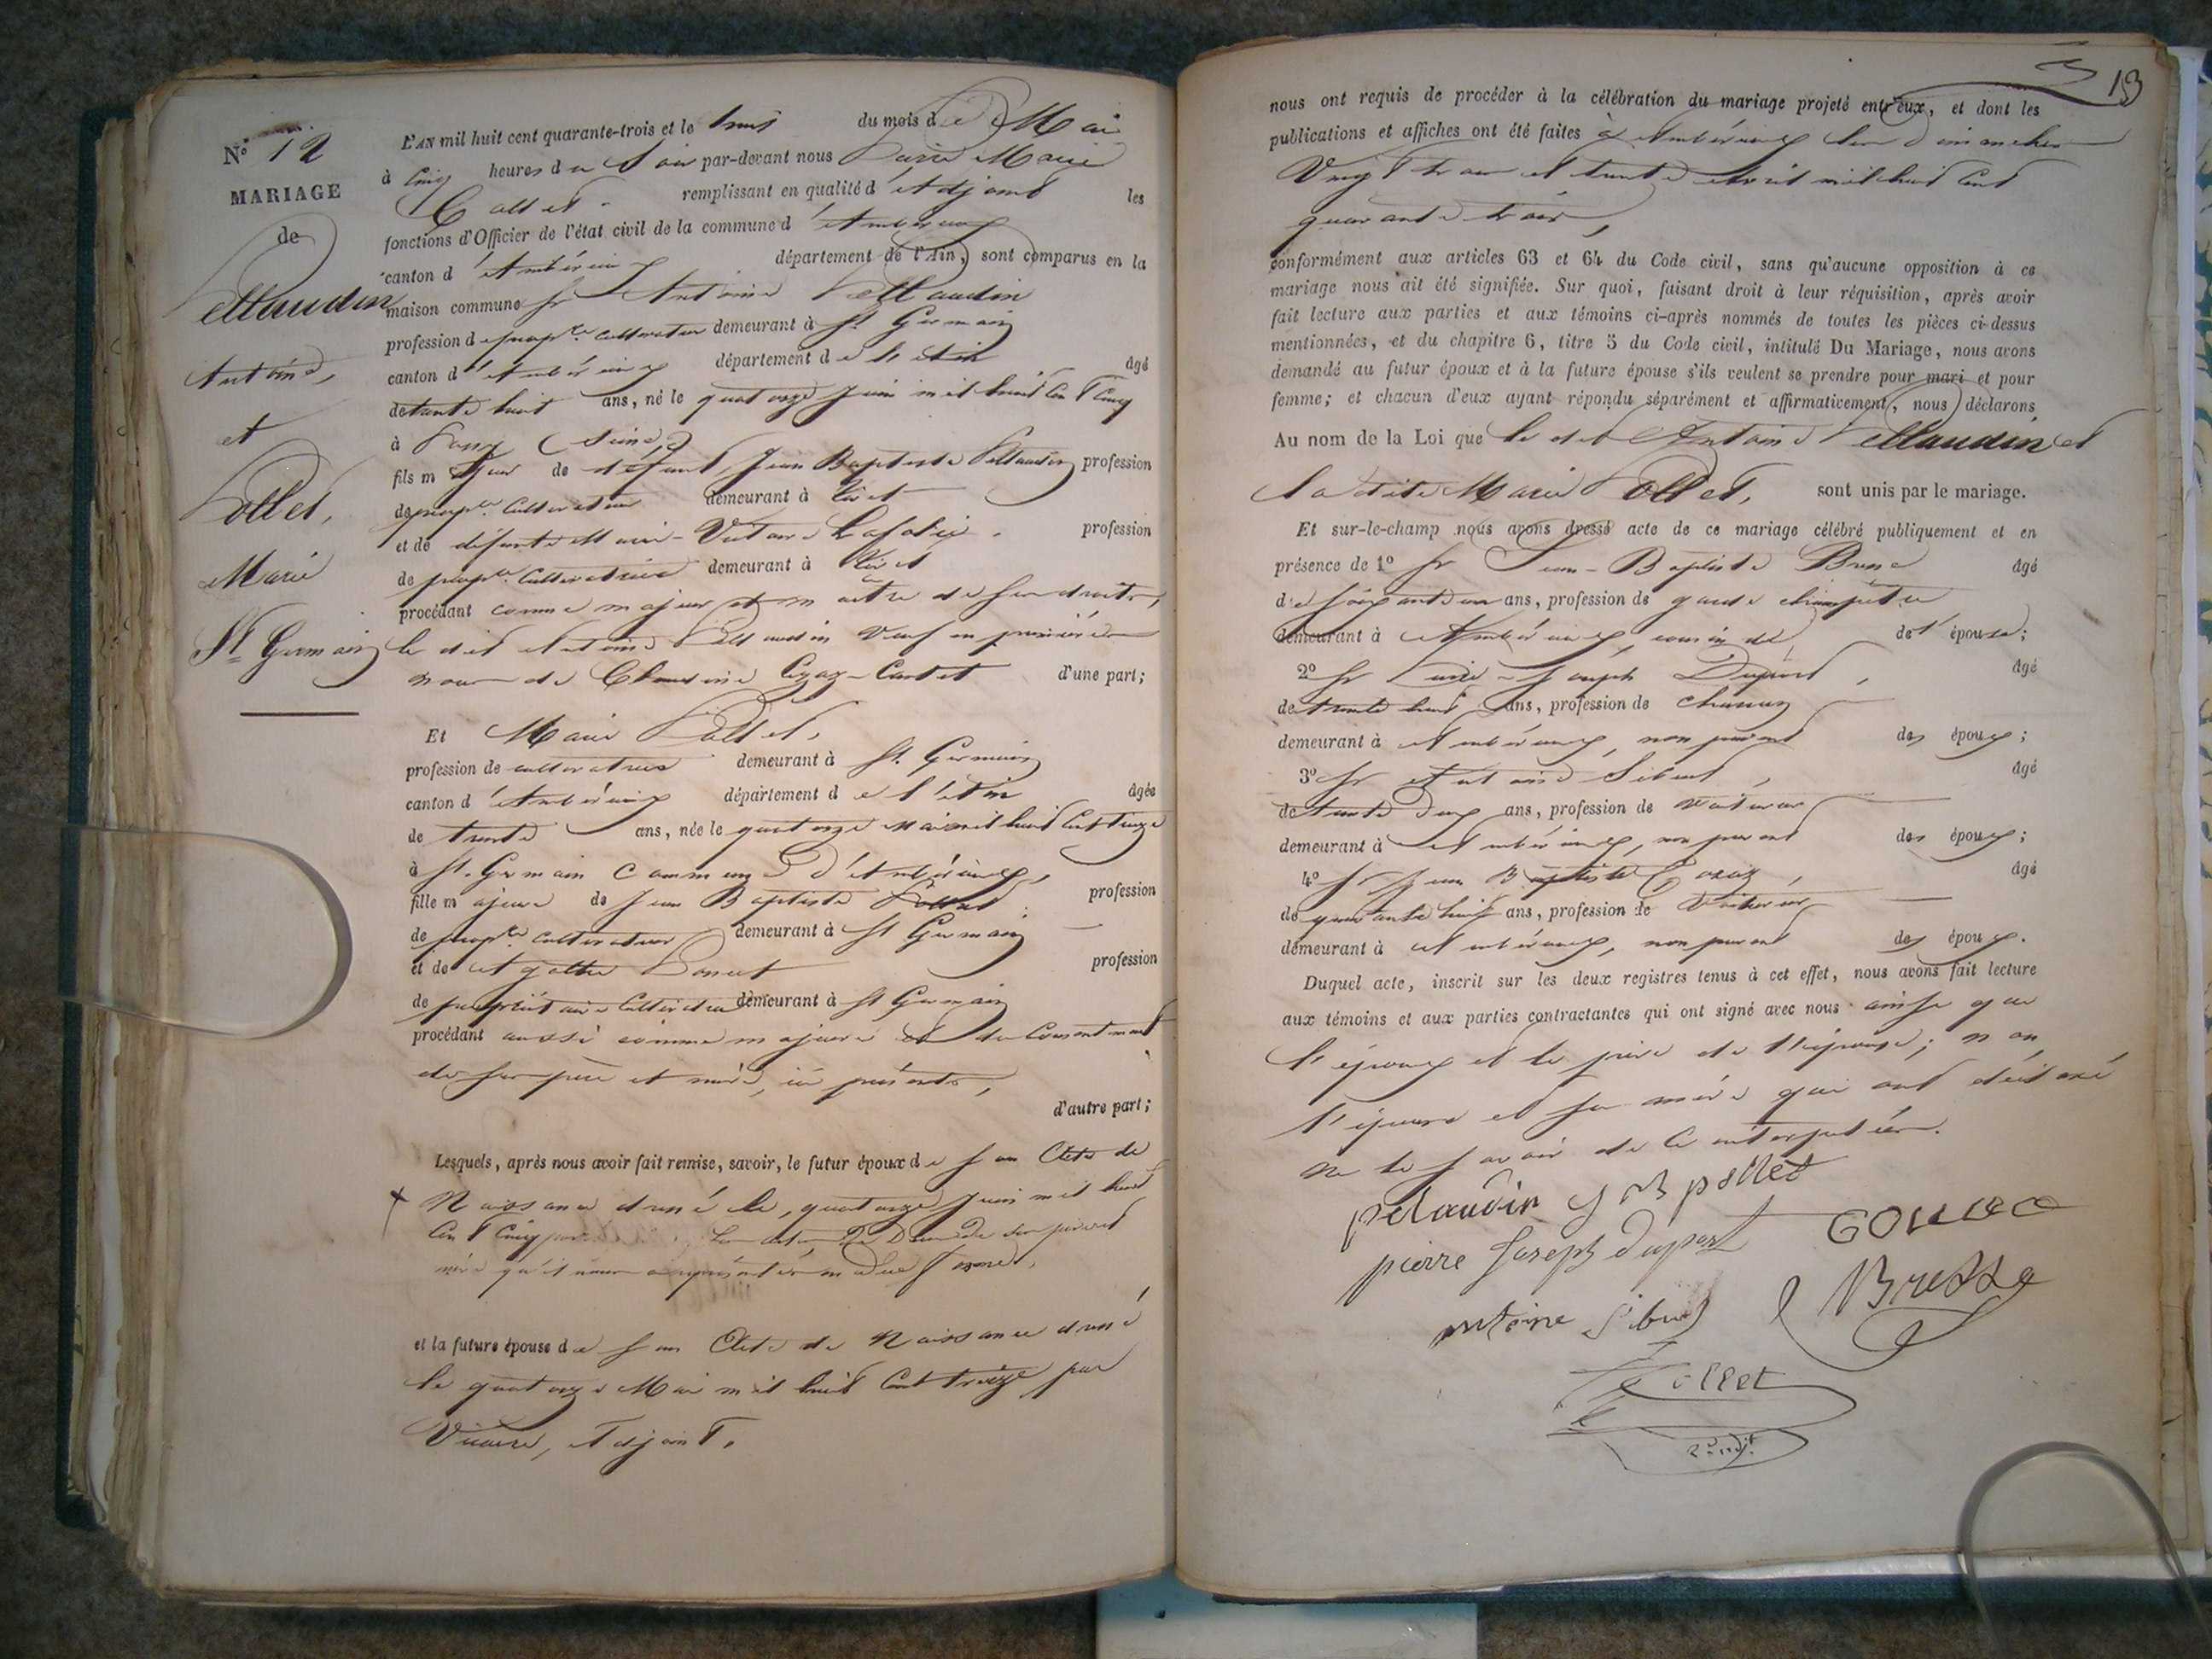 N.° 12
MARIAGE
de
Pellaudin
Antoine,
et
Pollet,
Marie
St. Germain
L'AN mil huit cent quarante-trois et le trois du mois de Mai
à cinq heures du Soir par-devant nous Pierre Marie
Collet remplissant en qualité d'Adjoint les
fonctions d'Officier de l'état civil de la commune d'Ambérieux
canton d'Ambérieux département de l'Ain, sont comparus en la
maison commune Sr Antoine Pellaudin
profession de prop.re cultivateur demeurant à St. Germain
canton d'Ambérieux département de l'Ain âgé
de trente huit ans, né le quatorze Juin mil huit cent cinq
à (Seine)
fils majeur de défunt Jean Baptiste Pellaudin profession
de prop.re cultivateur demeurant à
et de défunte Marie-Victoire profession
de prop.re cultivatrice demeurant à
procédant comme majeur et maître de ses droits,
le dit Antoine Pellaudin veuf en premières
noces de Claudine d'une part;
Et Marie Pollet,
profession de cultivatrice demeurant à St. Germain
canton d'Ambérieux département de l'Ain âgée
de trente ans, née le quatorze Mai mil huit cent treize
à St. Germain Commune d'Ambérieux,
fille majeure de Jean Baptiste Pollet profession
de prop.re cultivateur demeurant à St Germain
et de profession
de propriétaire cultivatrice demeurant à St Germain
procédant aussi comme majeure et du consentement
de ses père et mère, ici présents,
d'autre part;
Lesquels, après nous avoir fait remise, savoir, le futur époux de son Acte de
Naissance du quatorze Juin mil huit
cent cinq
mère qu'il nous a représentés en due forme,
et la future épouse de son Acte de Naissance
le quatorze Mai mil huit cent treize par
Adjoint.
13
nous ont requis de procéder à la célébration du mariage projeté entr'eux, et dont les
publications et affiches ont été faites à Ambérieux les dimanches
Vingt trois et trente avril mil huit cent
quarante trois,
conformément aux articles 63 et 64 du Code civil, sans qu'aucune opposition à ce
mariage nous ait été signifiée. Sur quoi, faisant droit à leur réquisition, après avoir
fait lecture aux parties et aux témoins ci-après nommés de toutes les pièces ci-dessus
mentionnées, et du chapitre 6, titre 5 du Code civil, intitulé Du Mariage, nous avons
demandé au futur époux et à la future épouse s'ils veulent se prendre pour mari et pour
femme; et chacun d'eux ayant répondu séparément et affirmativement, nous déclarons
Au nom de la Loi que le dit Antoine Pellaudin et
la dite Marie Pollet, sont unis par le mariage.
Et sur-le-champ nous avons dressé acte de ce mariage célébré publiquement et en
présence de 1° Sr Jean-Baptiste âgé
de soixante un ans, profession de garde champêtre
demeurant à Ambérieux, cousin de l'épouse;
2° Sr Pierre-Joseph Dupont, âgé
de trente huit ans, profession de
demeurant à Ambérieux, non parent des époux;
3° Sr Antoine Sibuet, âgé
de trente deux ans, profession de voiturier
demeurant à Ambérieux, non parent des époux;
4° Sr Jean Baptiste âgé
de quarante huit ans, profession de voiturier
demeurant à Ambérieux, non parent des époux.
Duquel acte, inscrit sur les deux registres tenus à cet effet, nous avons fait lecture
aux témoins et aux parties contractantes qui ont signé avec nous ainsi que
l'époux et le père de l'épouse; non
l'épouse et sa mère qui ont déclaré
ne le savoir de ce interpellées.
pelaudin J B pollet
pierre Joseph dupont
antoine Sibuet
Collet